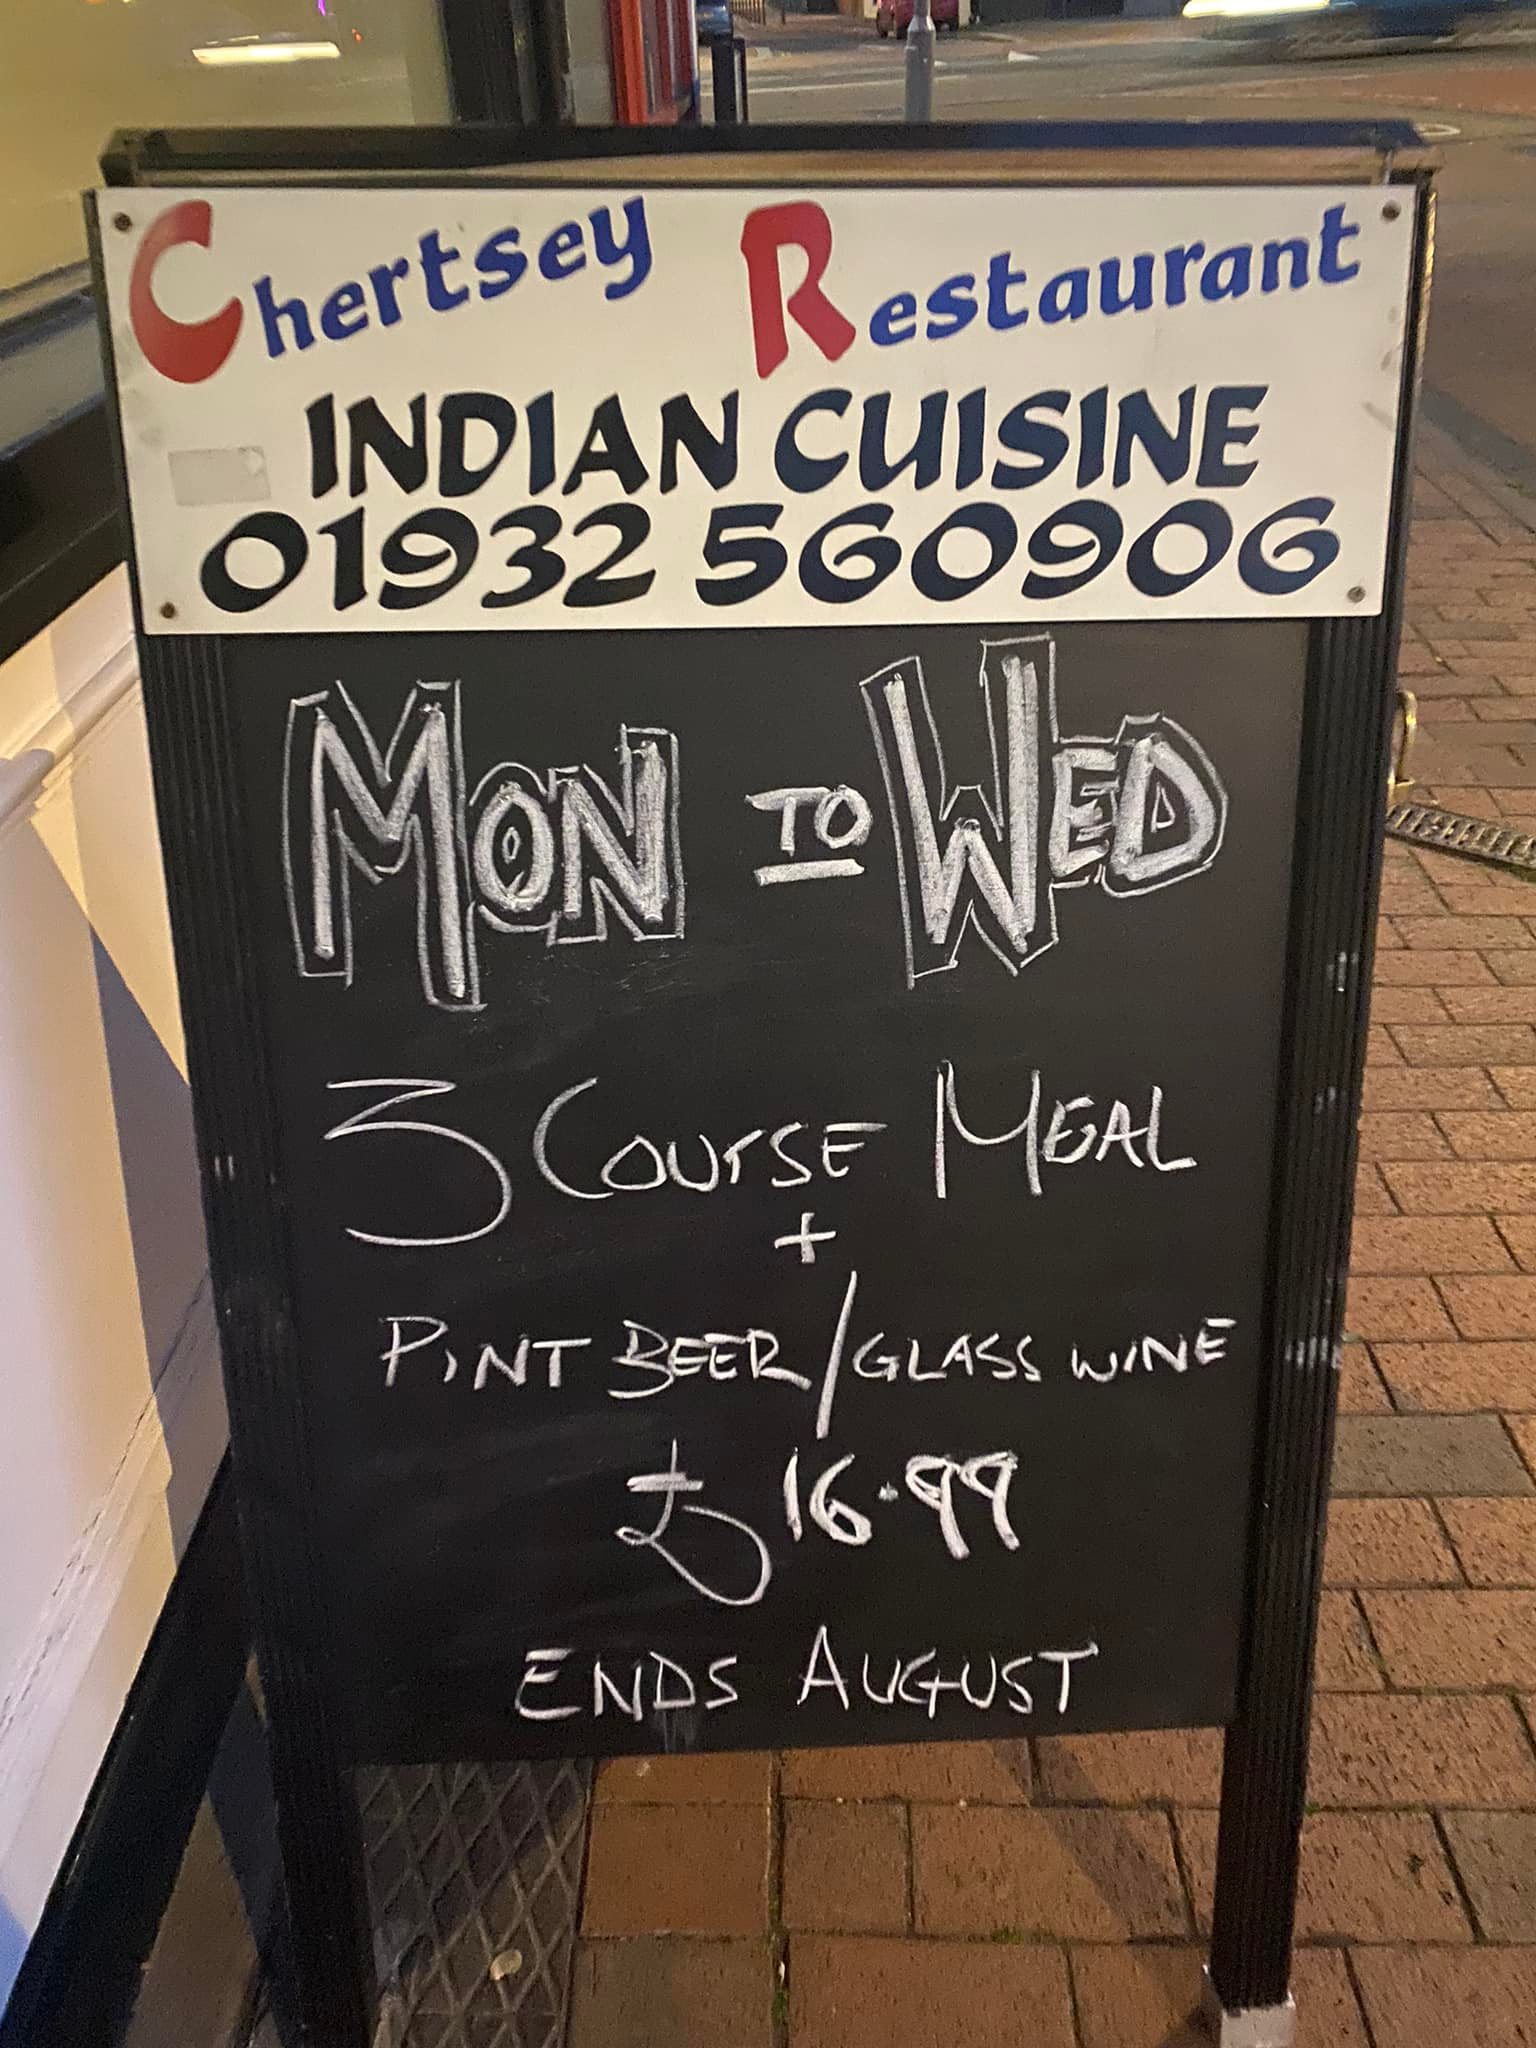 Chertsey Restaurant
INDIAN CUISINE
01932 560906
MON TO WED
3 COURSE MEAL
+
PINT BEER/GLASS WINE
£16.99
ENDS AUGUST